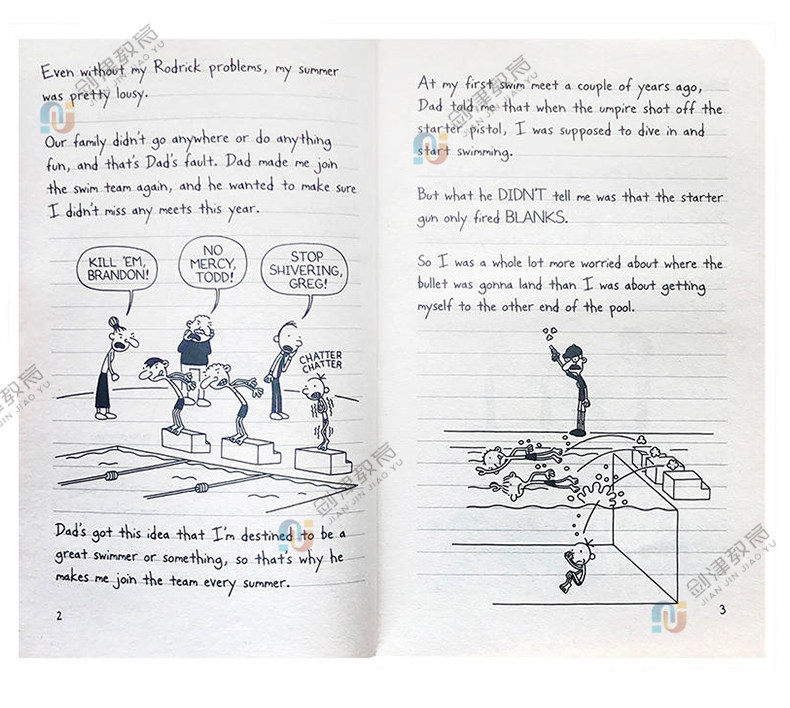 Even without my Rodrick problems, my summer
was pretty lousy.
Our family didn't go anywhere or do anything
fun, and that's Dad's fault. Dad made me join
the swim team again, and he wanted to make sure
I didn't miss any meets this year.
KILL 'EM,
BRANDON!
NO
MERCY,
TODD!
STOP
SHIVERING,
GREG!
CHATTER
CHATTER
Dad's got this idea that I'm destined to be a
great swimmer or something, so that's why he
makes me join the team every summer.
2
At my first swim meet a couple of years ago,
Dad told me that when the umpire shot off the
starter pistol, I was supposed to dive in and
start swimming.
But what he DIDN'T tell me was that the starter
gun only fired BLANKS.
So I was a whole lot more worried about where the
bullet was gonna land than I was about getting
myself to the other end of the pool.
3
剑津教育
JIAN JIN JIAO YU
剑津教育
JIAN JIN JIAO YU
剑津教育
JIAN JIN JIAO YU
剑津教育
JIAN JIN JIAO YU